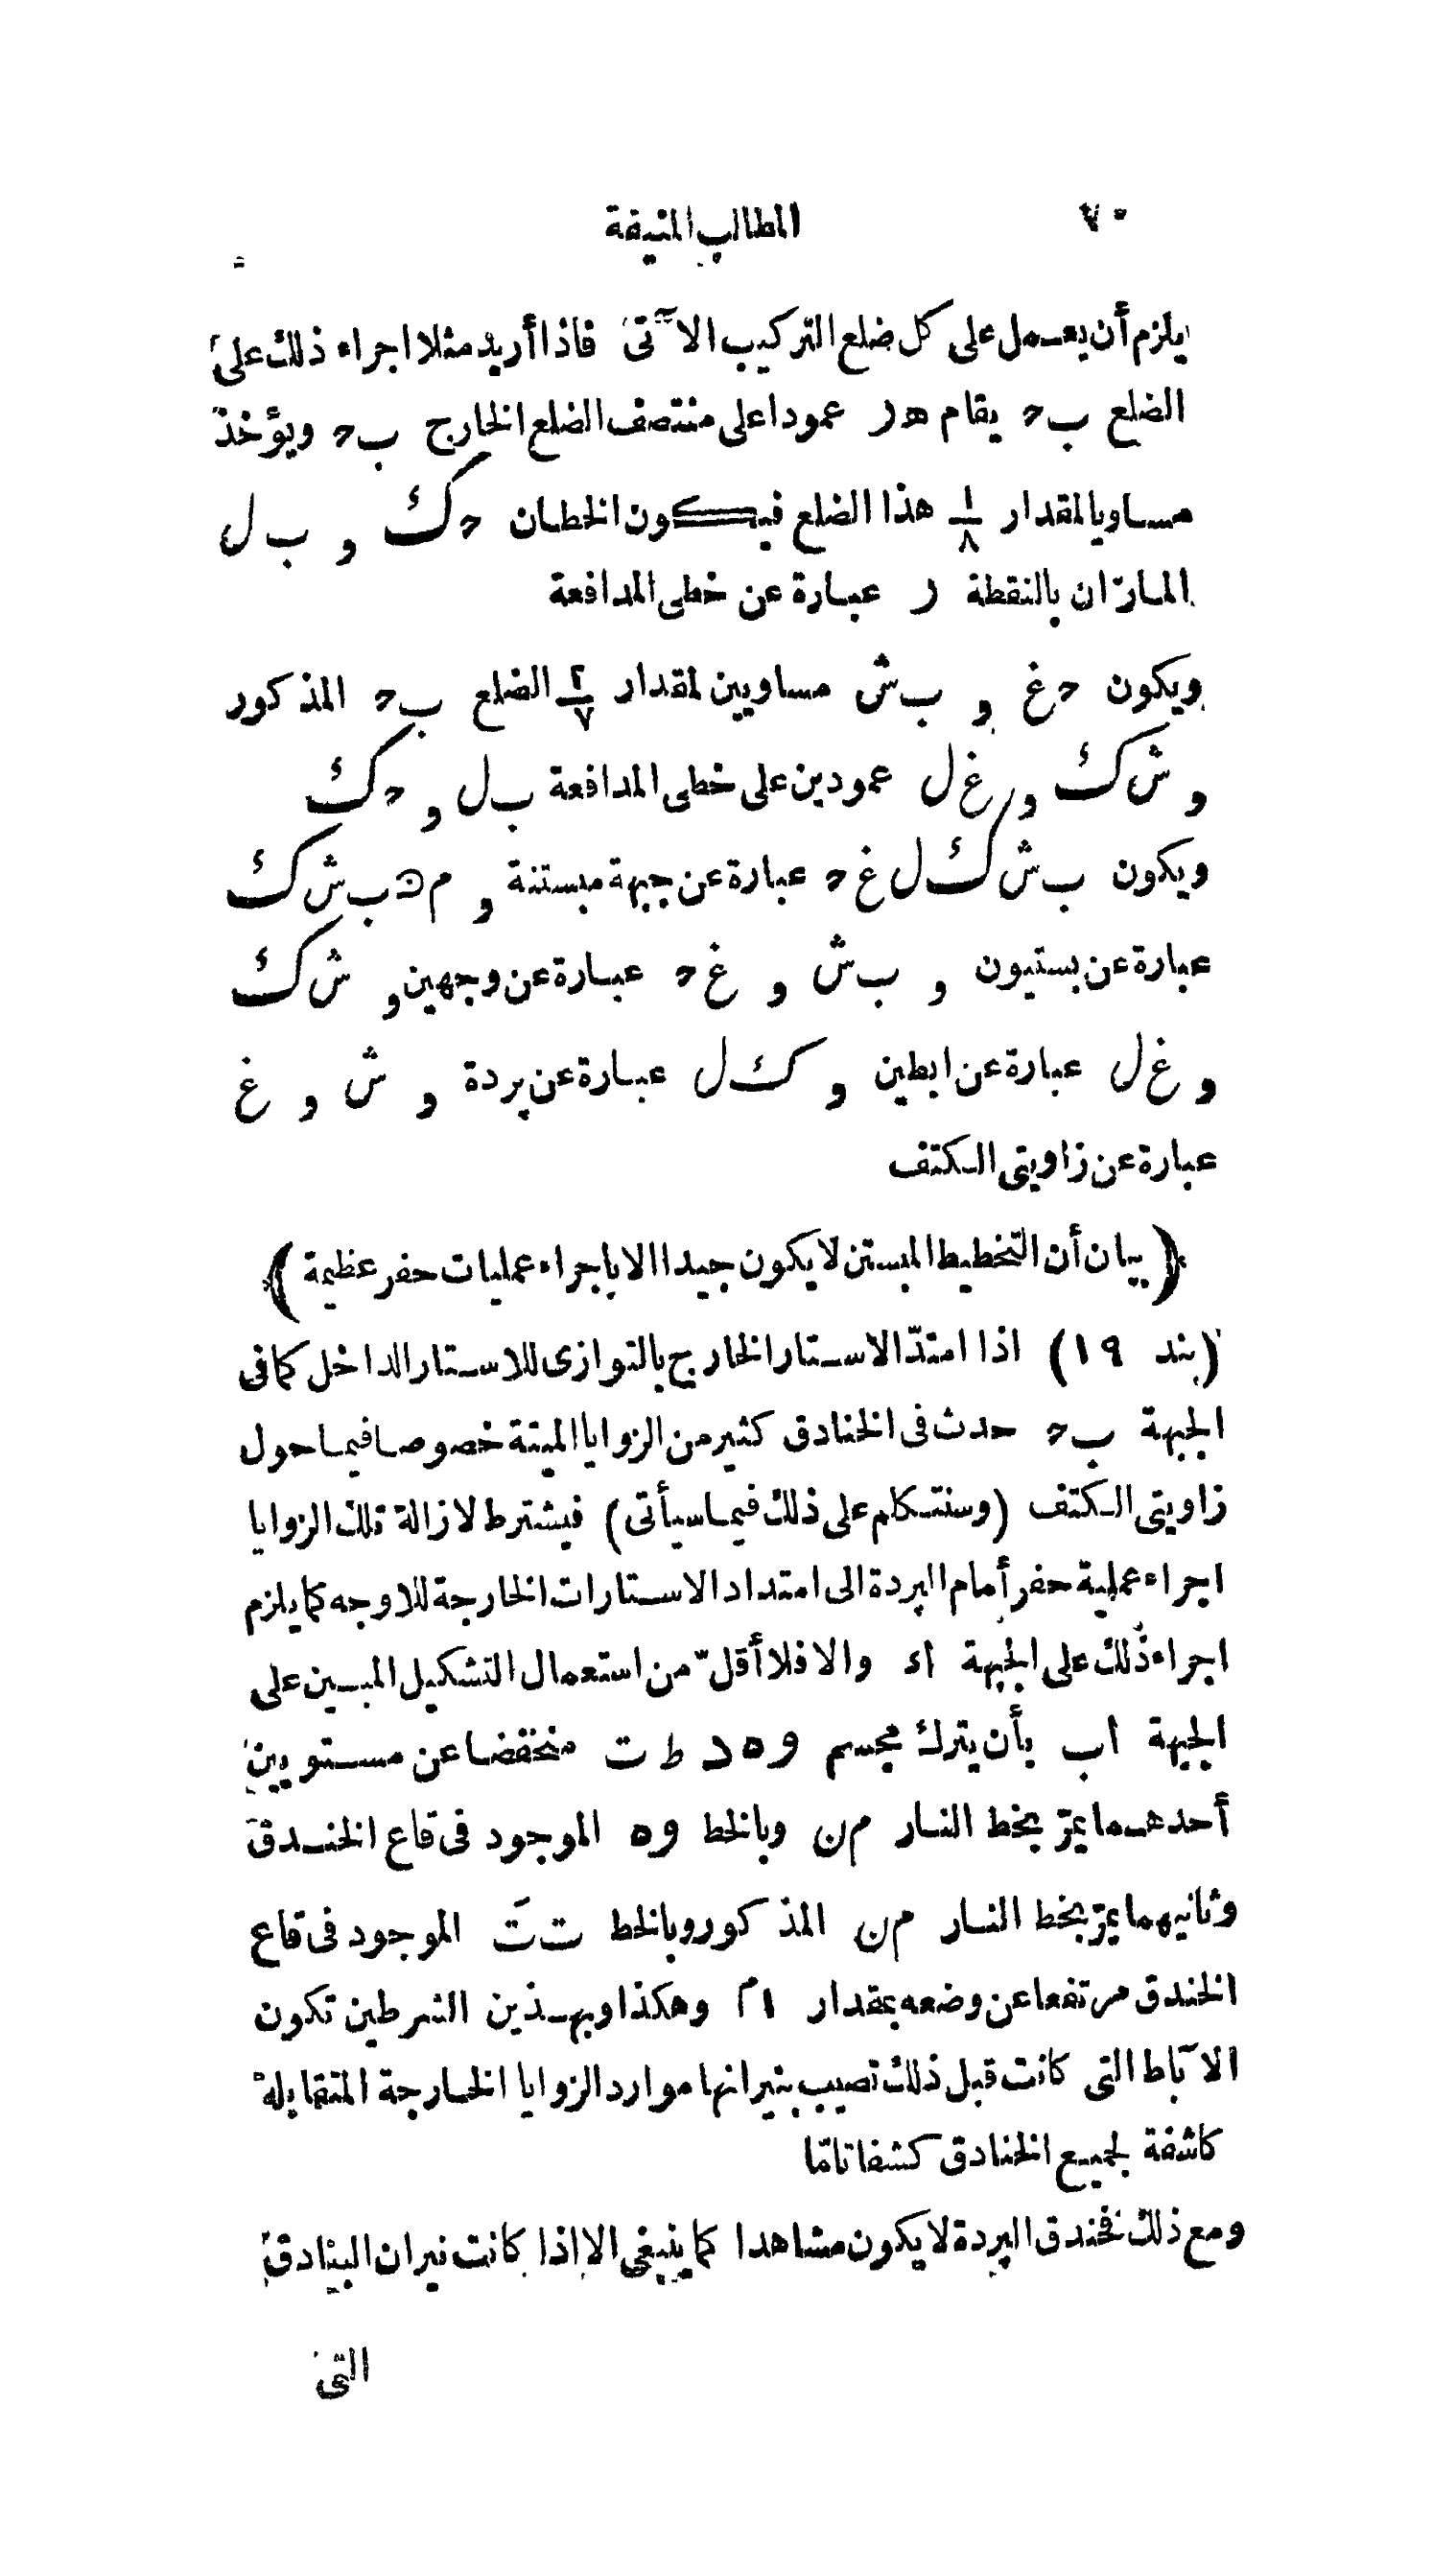 ٧٠ المطالب المنيفة
يلزم أن يعمل على كل ضلع التركيب الآتى فاذا أريد مثلا اجراء ذلك على
الضلع ب ح يقام ه ر عمودا على منتصف الضلع الخارج ب ح ويؤخذ
مساويا لمقدار ١/٨ هذا الضلع فيكون الخطان ح ك و ب ل
المارّان بالنقطة ر عبارة عن خطى المدافعة
ويكون ح غ و ب ش مساويين لمقدار ٢/٧ الضلع ب ح المذكور
و ش ك و غ ل عمودين على خطى المدافعة ب ل و ح ك
ويكون ب ش ك ل غ ح عبارة عن جبهة مبستنة و م ن ب ش ك
عبارة عن بستيون و ب ش و غ ح عبارة عن وجهين و ش ك
و غ ل عبارة عن ابطين و ك ل عبارة عن بردة و ش و غ
عبارة عن زاويتى الكتف
﴿بيان أن التخطيط المبستن لا يكون جيدا الا باجراء عمليات حفر عظيمة﴾
(بند ١٩) اذا امتدّ الاستار الخارج بالتوازى للاستار الداخل كما فى
الجبهة ب ح حدث فى الخنادق كثير من الزوايا الميتة خصوصا فيما حول
زاويتى الكتف (وسنتكلم على ذلك فيما سيأتى) فيشترط لازالة تلك الزوايا
اجراء عملية حفر أمام البردة الى امتداد الاستارات الخارجة للاوجه كما يلزم
اجراء ذلك على الجبهة ا ء والا فلا أقلّ من استعمال التشكيل المبين على
الجبهة ا ب بأن يترك مجسم و ه د ط ت منخفضا عن مستويين
أحدهما يمرّ بخط النار م ن وبالخط و ه الموجود فى قاع الخندق
وثانيهما يمرّ بخط النار م ن المذكور وبالخط ت تَ الموجود فى قاع
الخندق مرتفعا عن وضعه بمقدار ١م وهكذا وبهذين الشرطين تكون
الآباط التى كانت قبل ذلك تصيب بنيرانها موارد الزوايا الخارجة المتقابلة
كاشفة لجميع الخنادق كشفا تامّا
ومع ذلك فخندق البردة لا يكون مشاهدا كما ينبغى الا اذا كانت نيران البنادق
التى